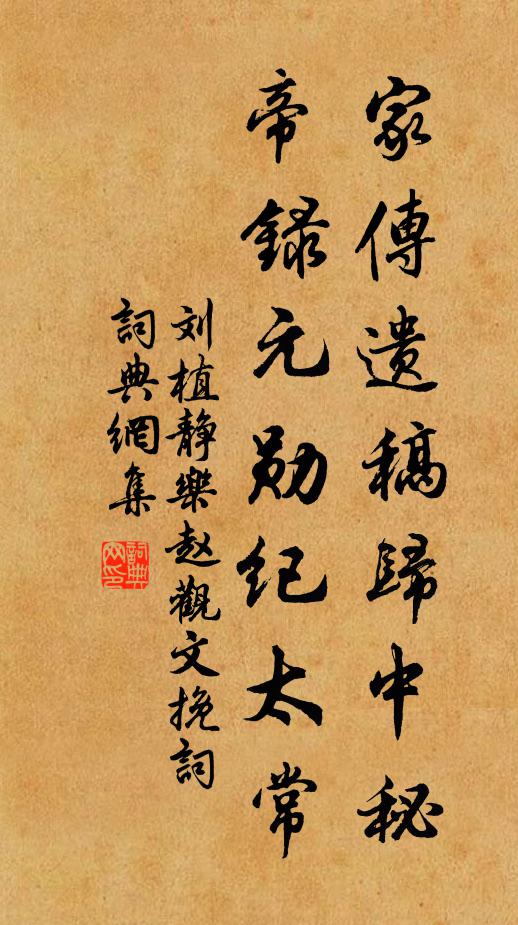 家傳遺稿歸中秘
帝録元勋纪太常
刘植静樂赵觀文挽詞
詞典網集
詞典网印